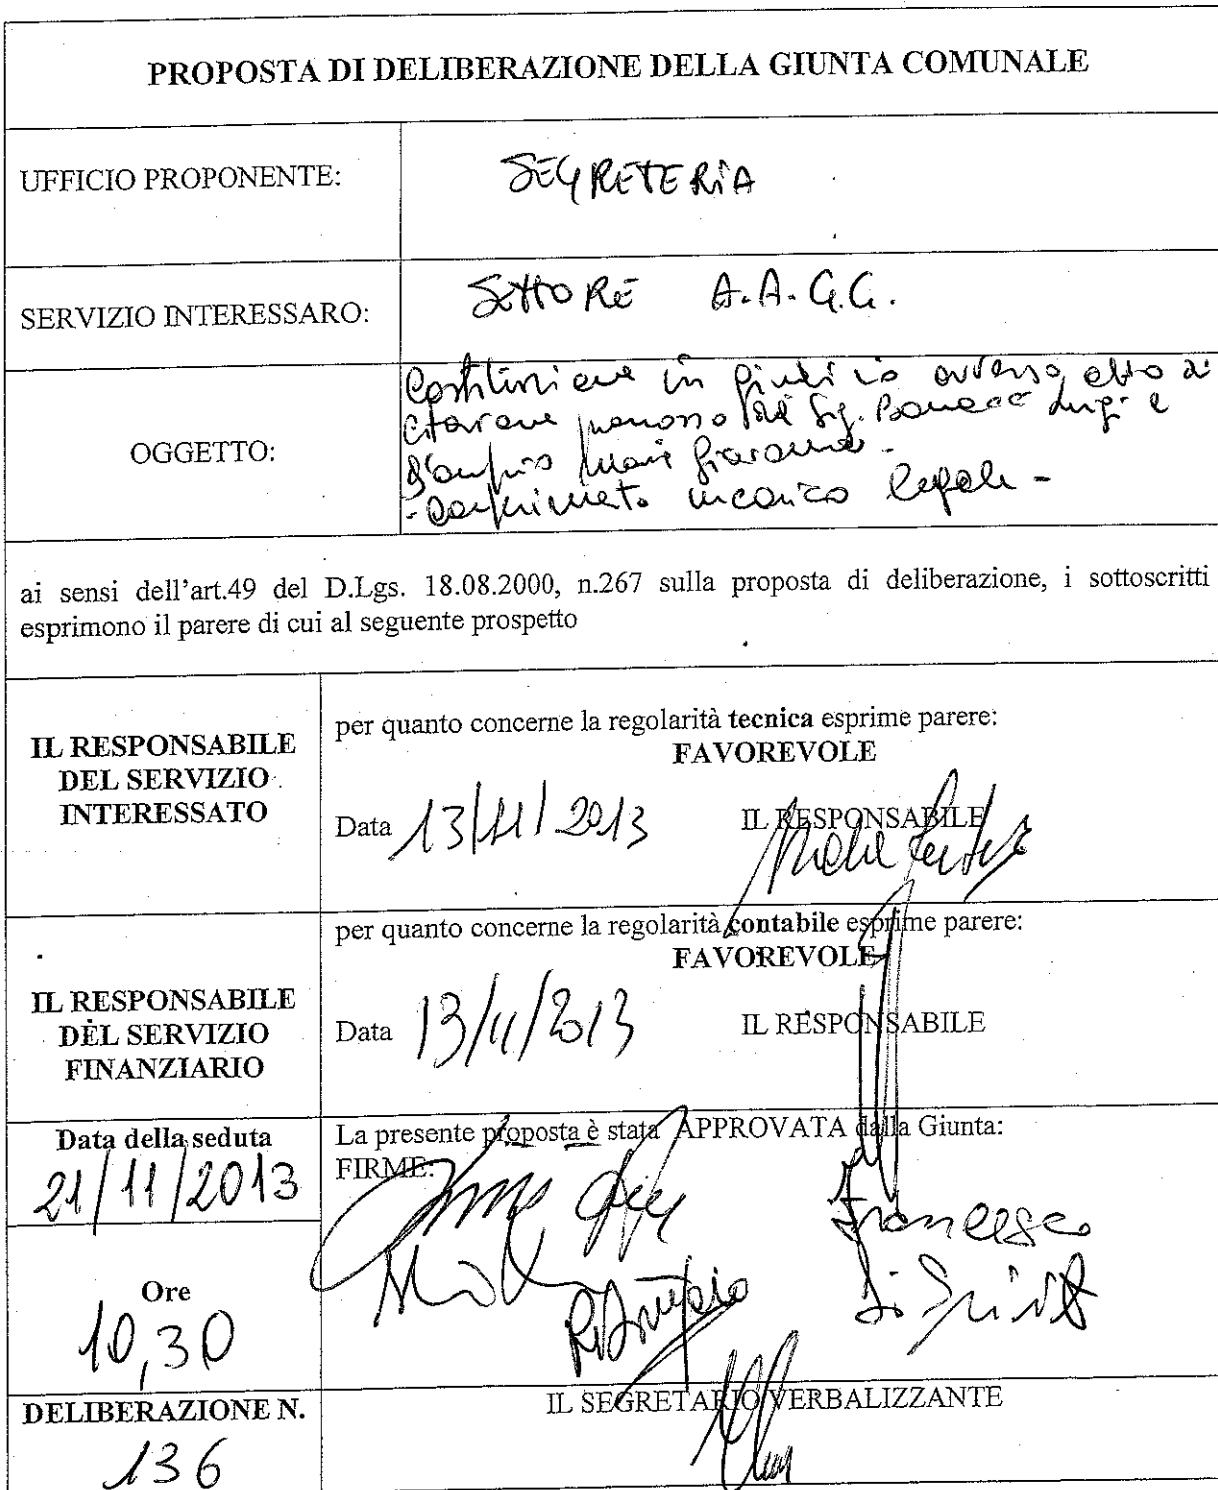 PROPOSTA DI DELIBERAZIONE DELLA GIUNTA COMUNALE
UFFICIO PROPONENTE: SEGRETERIA
SERVIZIO INTERESSARO: SETTORE A.A.G.G.
OGGETTO:
Costituzione in giudizio avverso atto di
citazione promosso Sig. Luigi e
D'Amprio Maria
- Conferimento incarico legale -
ai sensi dell'art.49 del D.Lgs. 18.08.2000, n.267 sulla proposta di deliberazione, i sottoscritti
esprimono il parere di cui al seguente prospetto
IL RESPONSABILE
DEL SERVIZIO
INTERESSATO
per quanto concerne la regolarità tecnica esprime parere:
FAVOREVOLE
Data 13/11/2013 IL RESPONSABILE
IL RESPONSABILE
DEL SERVIZIO
FINANZIARIO
per quanto concerne la regolarità contabile esprime parere:
FAVOREVOLE
Data 13/11/2013 IL RESPONSABILE
Data della seduta
21/11/2013
Ore
10,30
La presente proposta è stata APPROVATA dalla Giunta:
FIRME:
Francesco
Di
DELIBERAZIONE N.
136
IL SEGRETARIO VERBALIZZANTE